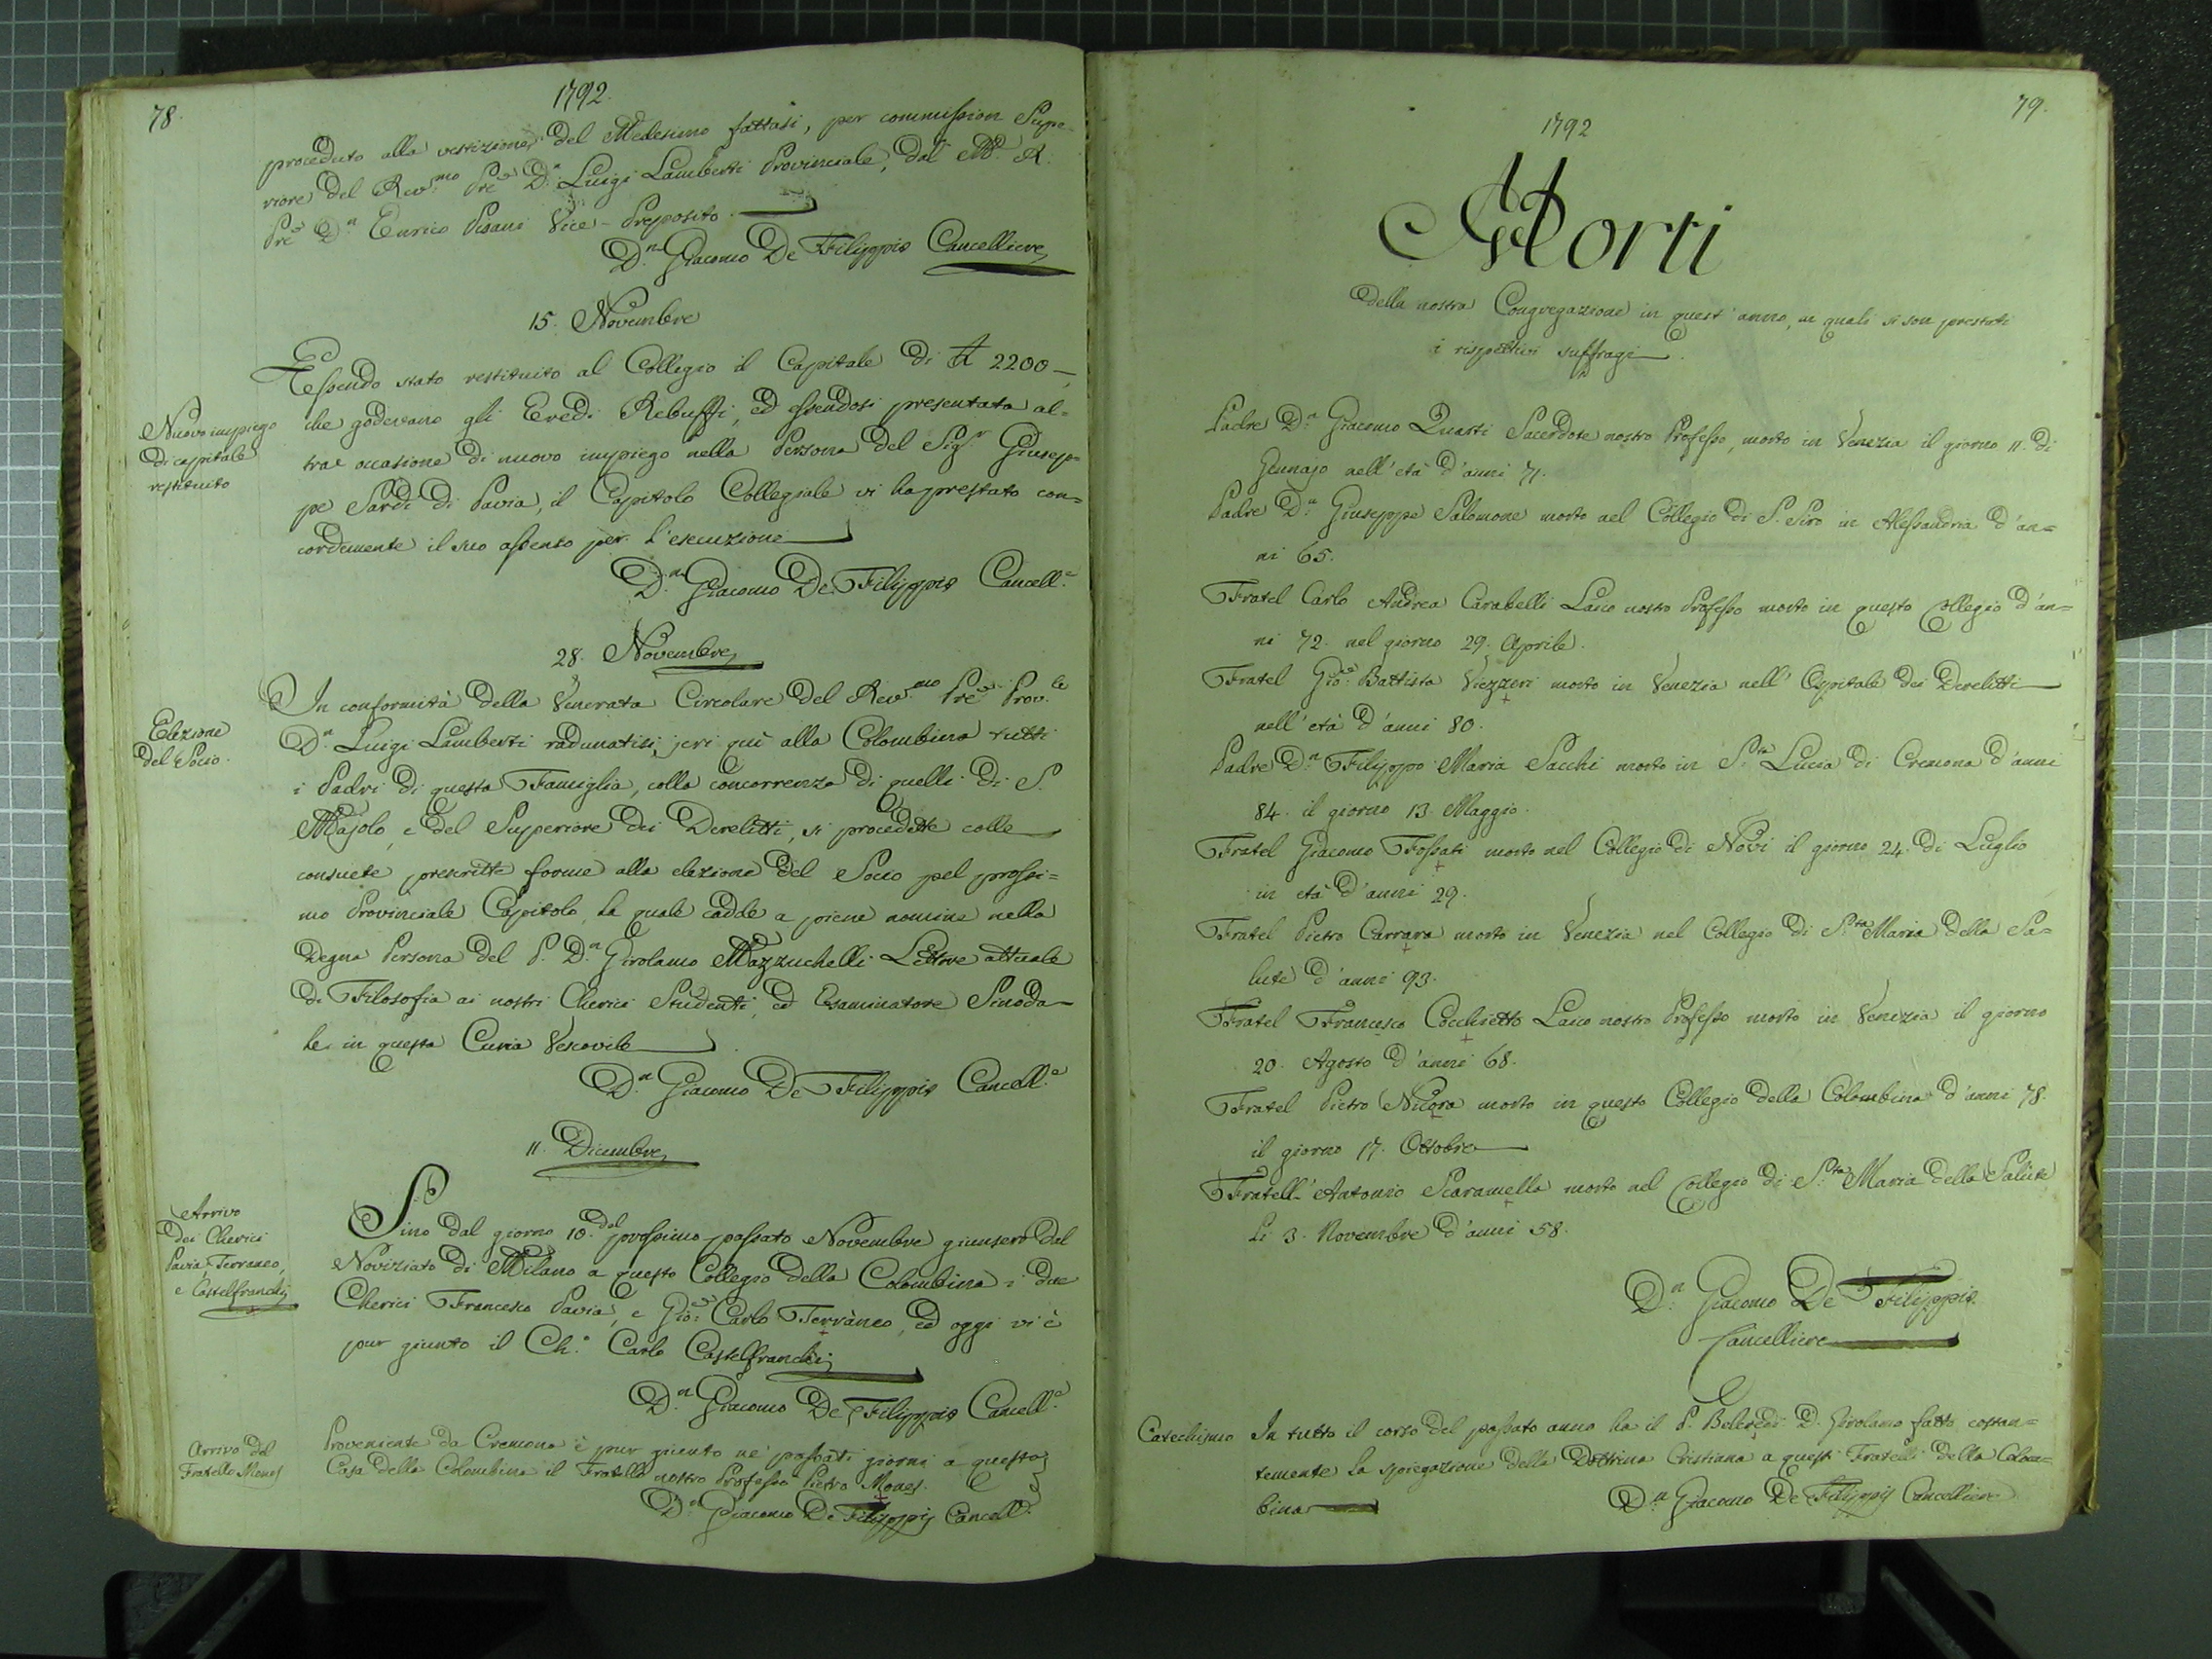 78.
1792.
proceduto alla vestizione del Medesimo fattasi, per commission Supe-
riore del Rev.mo Pre D.n Luigi Lamberti Provinciale, dal M. R.
Pre D.n Enrico Pisani Vice-Preposito.
D.n Giacomo De Filippis Cancelliere
15. Novembre
Nuovo impiego
di capitale
restituito
Essendo stato restituito al Collegio il Capitale di 2200
che godevano gli Eredi Rebuffi, ed essendosi presentata al=
tra occasione di nuovo impiego nella Persona del Sig.r Giusep=
pe Sardi di Pavia, il Capitolo Collegiale vi ha prestato con=
cordemente il suo assenso per l'esecuzione
D.n Giacomo De Filippis Cancell.e
28. Novembre
Elezione
del Socio.
In conformità della Venerata Circolare del Rev.mo Pre Prov.le
D.n Luigi Lamberti radunatisi jeri quì alla Colombina tutti
i Padri di questa Famiglia, colla concorrenza di quelli di S.
Majolo, e del Superiore dei Derelitti, si procedette colle
consuete prescritte forme alla elezione del Socio pel prossi=
mo Provinciale Capitolo, la quale cadde a piene nomine nella
degna Persona del P. D.n Girolamo Mazzuchelli Lettore attuale
di Filosofia ai nostri Cherici Studenti, ed Esaminatore Sinoda-
le in questa Curia Vescovile
D.n Giacomo De Filippis Cancell.e
11. Dicembre
Arrivo
dei Cherici
Pavia, Terraneo,
e Castelfranchi
Sino dal giorno 10. del prossimo passato Novembre giunsero dal
Noviziato di Milano a questo Collegio della Colombina i due
Cherici Francesco Pavia, e Gio: Carlo Terràneo, ed oggi vi è
pur giunto il Ch.o Carlo Castelfranchi
D.n Giacomo De Filippis Cancell.e
Arrivo del
Fratello Mones
Proveniente da Cremona è pur giunto ne' passati giorni a questa
Casa della Colombina il Fratello nostro Professo Pietro Mones.
D.n Giacomo De Filippis Cancell.
79.
1792
Morti
della nostra Congregazione in quest'anno, ai quali si son prestati
i rispettivi suffragi.
Padre D.n Giacomo Quarti Sacerdote nostro Professo, morto in Venezia il giorno 11. di
Gennajo nell'età d'anni 71.
Padre D.n Giuseppe Salomone morto nel Collegio di S. Siro in Alessandria d'an=
ni 65.
Fratel Carlo Andrea Carabelli Laico nostro Professo morto in questo Collegio d'an=
ni 72. nel giorno 29. Aprile.
Fratel Gio: Battista Viezzeri morto in Venezia nell'Ospitale dei Derelitti
nell'età d'anni 80.
Padre D.n Filippo Maria Sacchi morto in S.ta Lucia di Cremona d'anni
84. il giorno 13. Maggio.
Fratel Giacomo Fossati morto nel Collegio di Novi il giorno 24. di Luglio
in età d'anni 29.
Fratel Pietro Carrara morto in Venezia nel Collegio di S.ta Maria della Sa=
lute d'anni 93.
Fratel Francesco Cocchietto Laico nostro Professo morto in Venezia il giorno
20. Agosto d'anni 68.
Fratel Pietro Nicora morto in questo Collegio della Colombina d'anni 78.
il giorno 17. Ottobre
Fratell' Antonio Scaramella morto nel Collegio di S.ta Maria della Salute
li 3. Novembre d'anni 58.
D.n Giacomo De Filippis
Cancelliere
Catechismo
In tutto il corso del passato anno ha il P. D. Girolamo fatto costan=
temente la spiegazione della Dottrina Cristiana a questi Fratelli della Colom=
bina
D.n Giacomo De Filippis Cancelliere